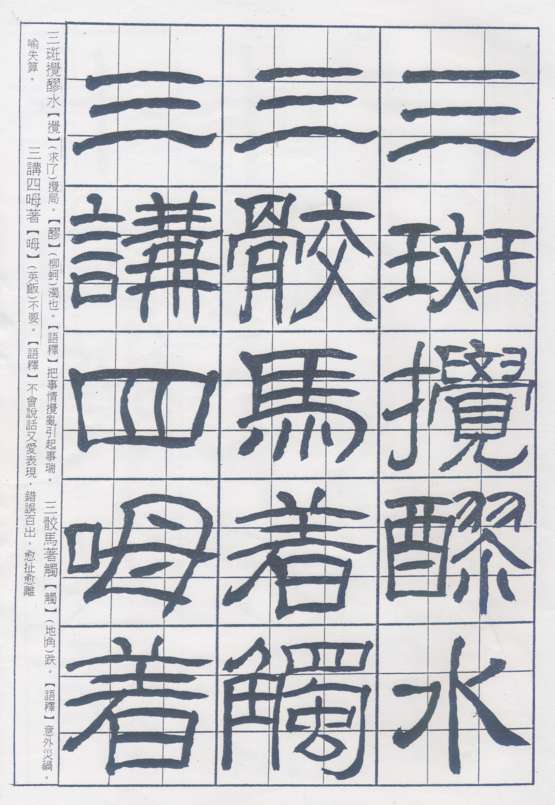 三斑攪醪水
三骰馬着觸
三講四呣着
三斑攪醪水【攪】(求了)攪局。【醪】(柳蚵)濁也。【語釋】把事情攪亂引起事瑞。 三骰馬著觸【觸】(地角)跌。【語釋】意外災禍。
喻失算。 三講四呣著【呣】(英飯)不要。【語釋】不會說話又愛表現,錯誤百出,愈扯愈離